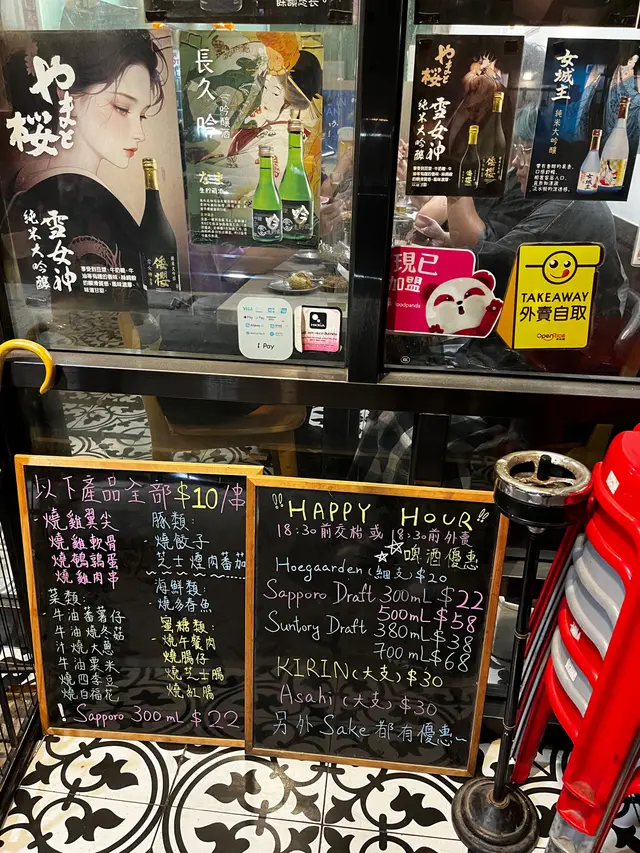 やまと桜
雪女神
純米大吟醸
長久吟
吟醸酒
なま
生貯蔵酒
やまと桜
雪女神
純米大吟醸
女城主
純米大吟醸
現已
加盟
foodpanda
TAKEAWAY
外賣自取
OpenRice
Pay
以下產品全部$10/串
燒雞翼尖
燒雞軟骨
燒鵪鶉蛋
燒雞肉串
菜類:
牛油蕃薯仔
牛油燒冬菇
汁燒大蔥
牛油粟米
燒四季豆
燒白福花
豚類:
燒餃子
芝士煙肉蕃茄
海鮮類:
燒多春魚
蜜糖類:
燒午餐肉
燒腸仔
燒芝士腸
燒紅腸
! Sapporo 300 mL $22
!! HAPPY HOUR !!
18:30前交枱 或 18:30前外賣
啤酒優惠
Hoegaarden (細支) $20
Sapporo Draft 300mL $22
500mL $58
Suntory Draft 380mL $38
700mL $68
KIRIN (大支) $30
Asahi (大支) $30
另外 Sake 都有優惠~